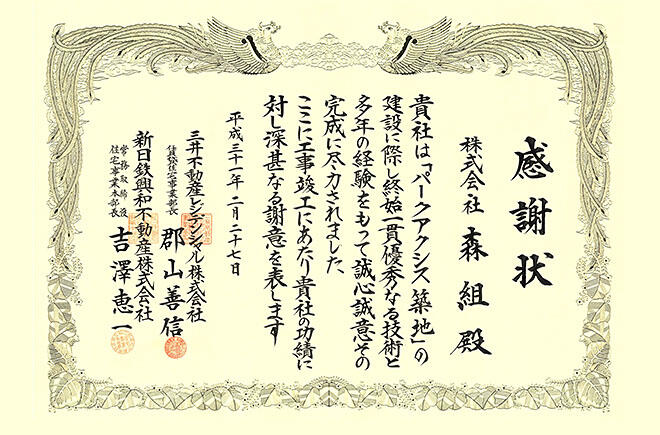 感謝状
株式会社 森組殿
貴社は「パークアクシス築地」の
建設に際し終始一貫優秀なる技術と
多年の経験をもって誠心誠意その
完成に尽力されました
ここに工事竣工にあたり貴社の功績に
対し深甚なる謝意を表します
平成三十一年二月二十七日
三井不動産レジデンシャル株式会社
賃貸住宅事業部長 郡山善信
新日鉄興和不動産株式会社
常務取締役
住宅事業本部長 吉澤恵一